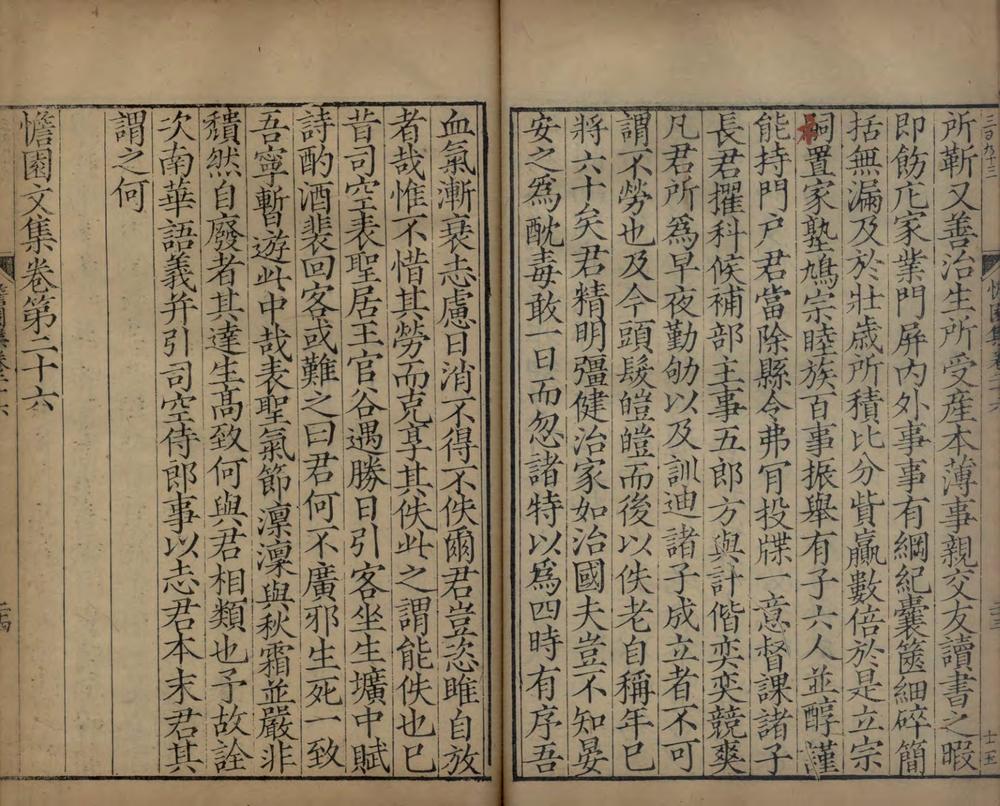 所靳又善治生所受產本薄事親交友讀書之暇
即飭庀家業門屏內外事事有綱紀囊篋細碎簡
括無漏及於壯歲所積比分貲贏數倍於是立宗
祠置家塾鳩宗睦族百事振舉有子六人並醇謹
能持門戶君當除縣令弗肎投牒一意督課諸子
長君擢科候補部主事五郎方與計偕奕奕競爽
凡君所爲早夜勤劬以及訓迪諸子成立者不可
謂不勞也及今頭髮皚皚而後以佚老自稱年已
將六十矣君精明彊健治家如治國夫豈不知晏
安之爲酖毒敢一日而忽諸特以爲四時有序吾
血氣漸衰志慮日消不得不佚爾君豈恣睢自放
者哉惟不惜其勞而克享其佚此之謂能佚也已
昔司空表聖居王官谷遇勝日引客坐生壙中賦
詩酌酒裴回客或難之曰君何不廣邪生死一致
吾寧暫遊此中哉表聖氣節凜凜與秋霜並嚴非
穨然自廢者其達生高致何與君相類也予故詮
次南華語義并引司空侍郎事以志君本末君其
謂之何
憺園文集卷第二十六